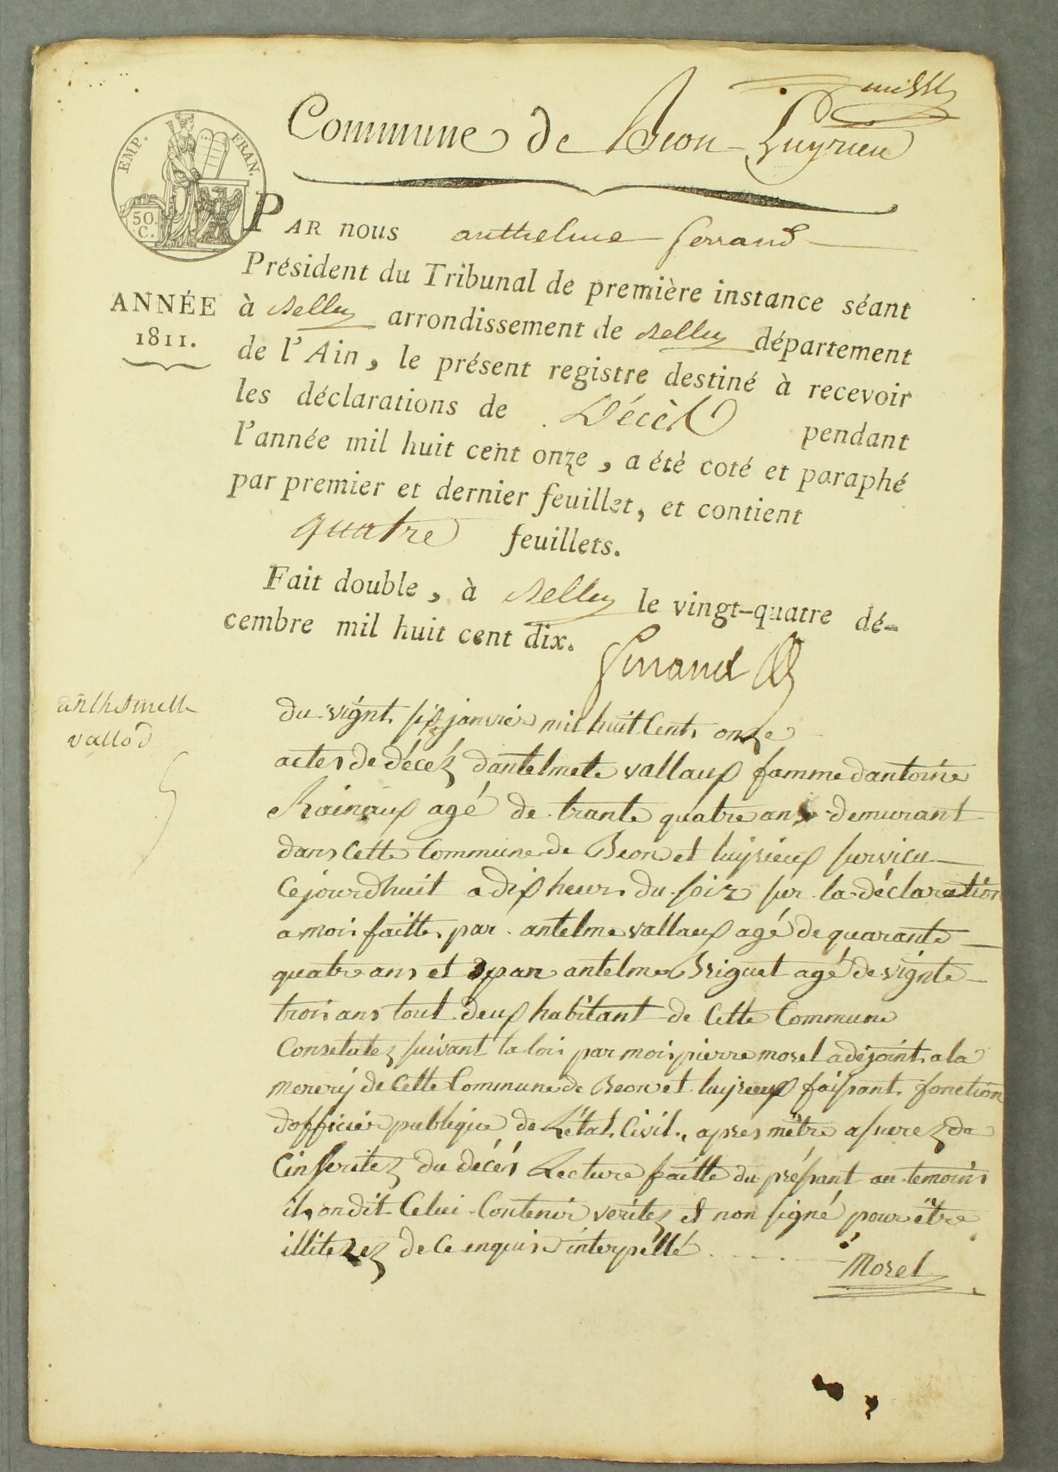 Commune de Beon-Luyrieu
EMP. FRAN.
50. C.
PAR nous anthelme ferrand
Président du Tribunal de première instance séant
ANNÉE
1811.
à Belley arrondissement de Belley département
de l'Ain, le présent registre destiné à recevoir
les déclarations de Décès pendant
l'année mil huit cent onze, a été coté et paraphé
par premier et dernier feuillet, et contient
quatre feuillets.
Fait double, à Belley le vingt-quatre dé-
cembre mil huit cent dix.
ferrand
vallod
du vignt six janvier mil huit Cent onze
actes de décéz dantelmete vallaux famme dantoine
Rainaux agé de trante quatre ans demurant
dans Cette Commune de Beon et luyrieux survieu
Cejourdhuit a dix heurs du soir sur la déclaration
a moi faitte par antelme vallaux agé de quarante
quatre ans et par antelme Briguet agé de vignte
trois ans tout deux habitant de Cette Commune
Constutez suivant la loi par moi pierre morel adejoint a la
merery de Cette Commune de Beon et luyrieux faisant fonction
dofficier publique de Létat Civil, apres mêtre asurez da
Cinseritez du décés Lecture faitte du présant au temoins
il on dit Celui Contenir veritez et non signé pour être
illiterez de ce enquis interpéllé
Morel